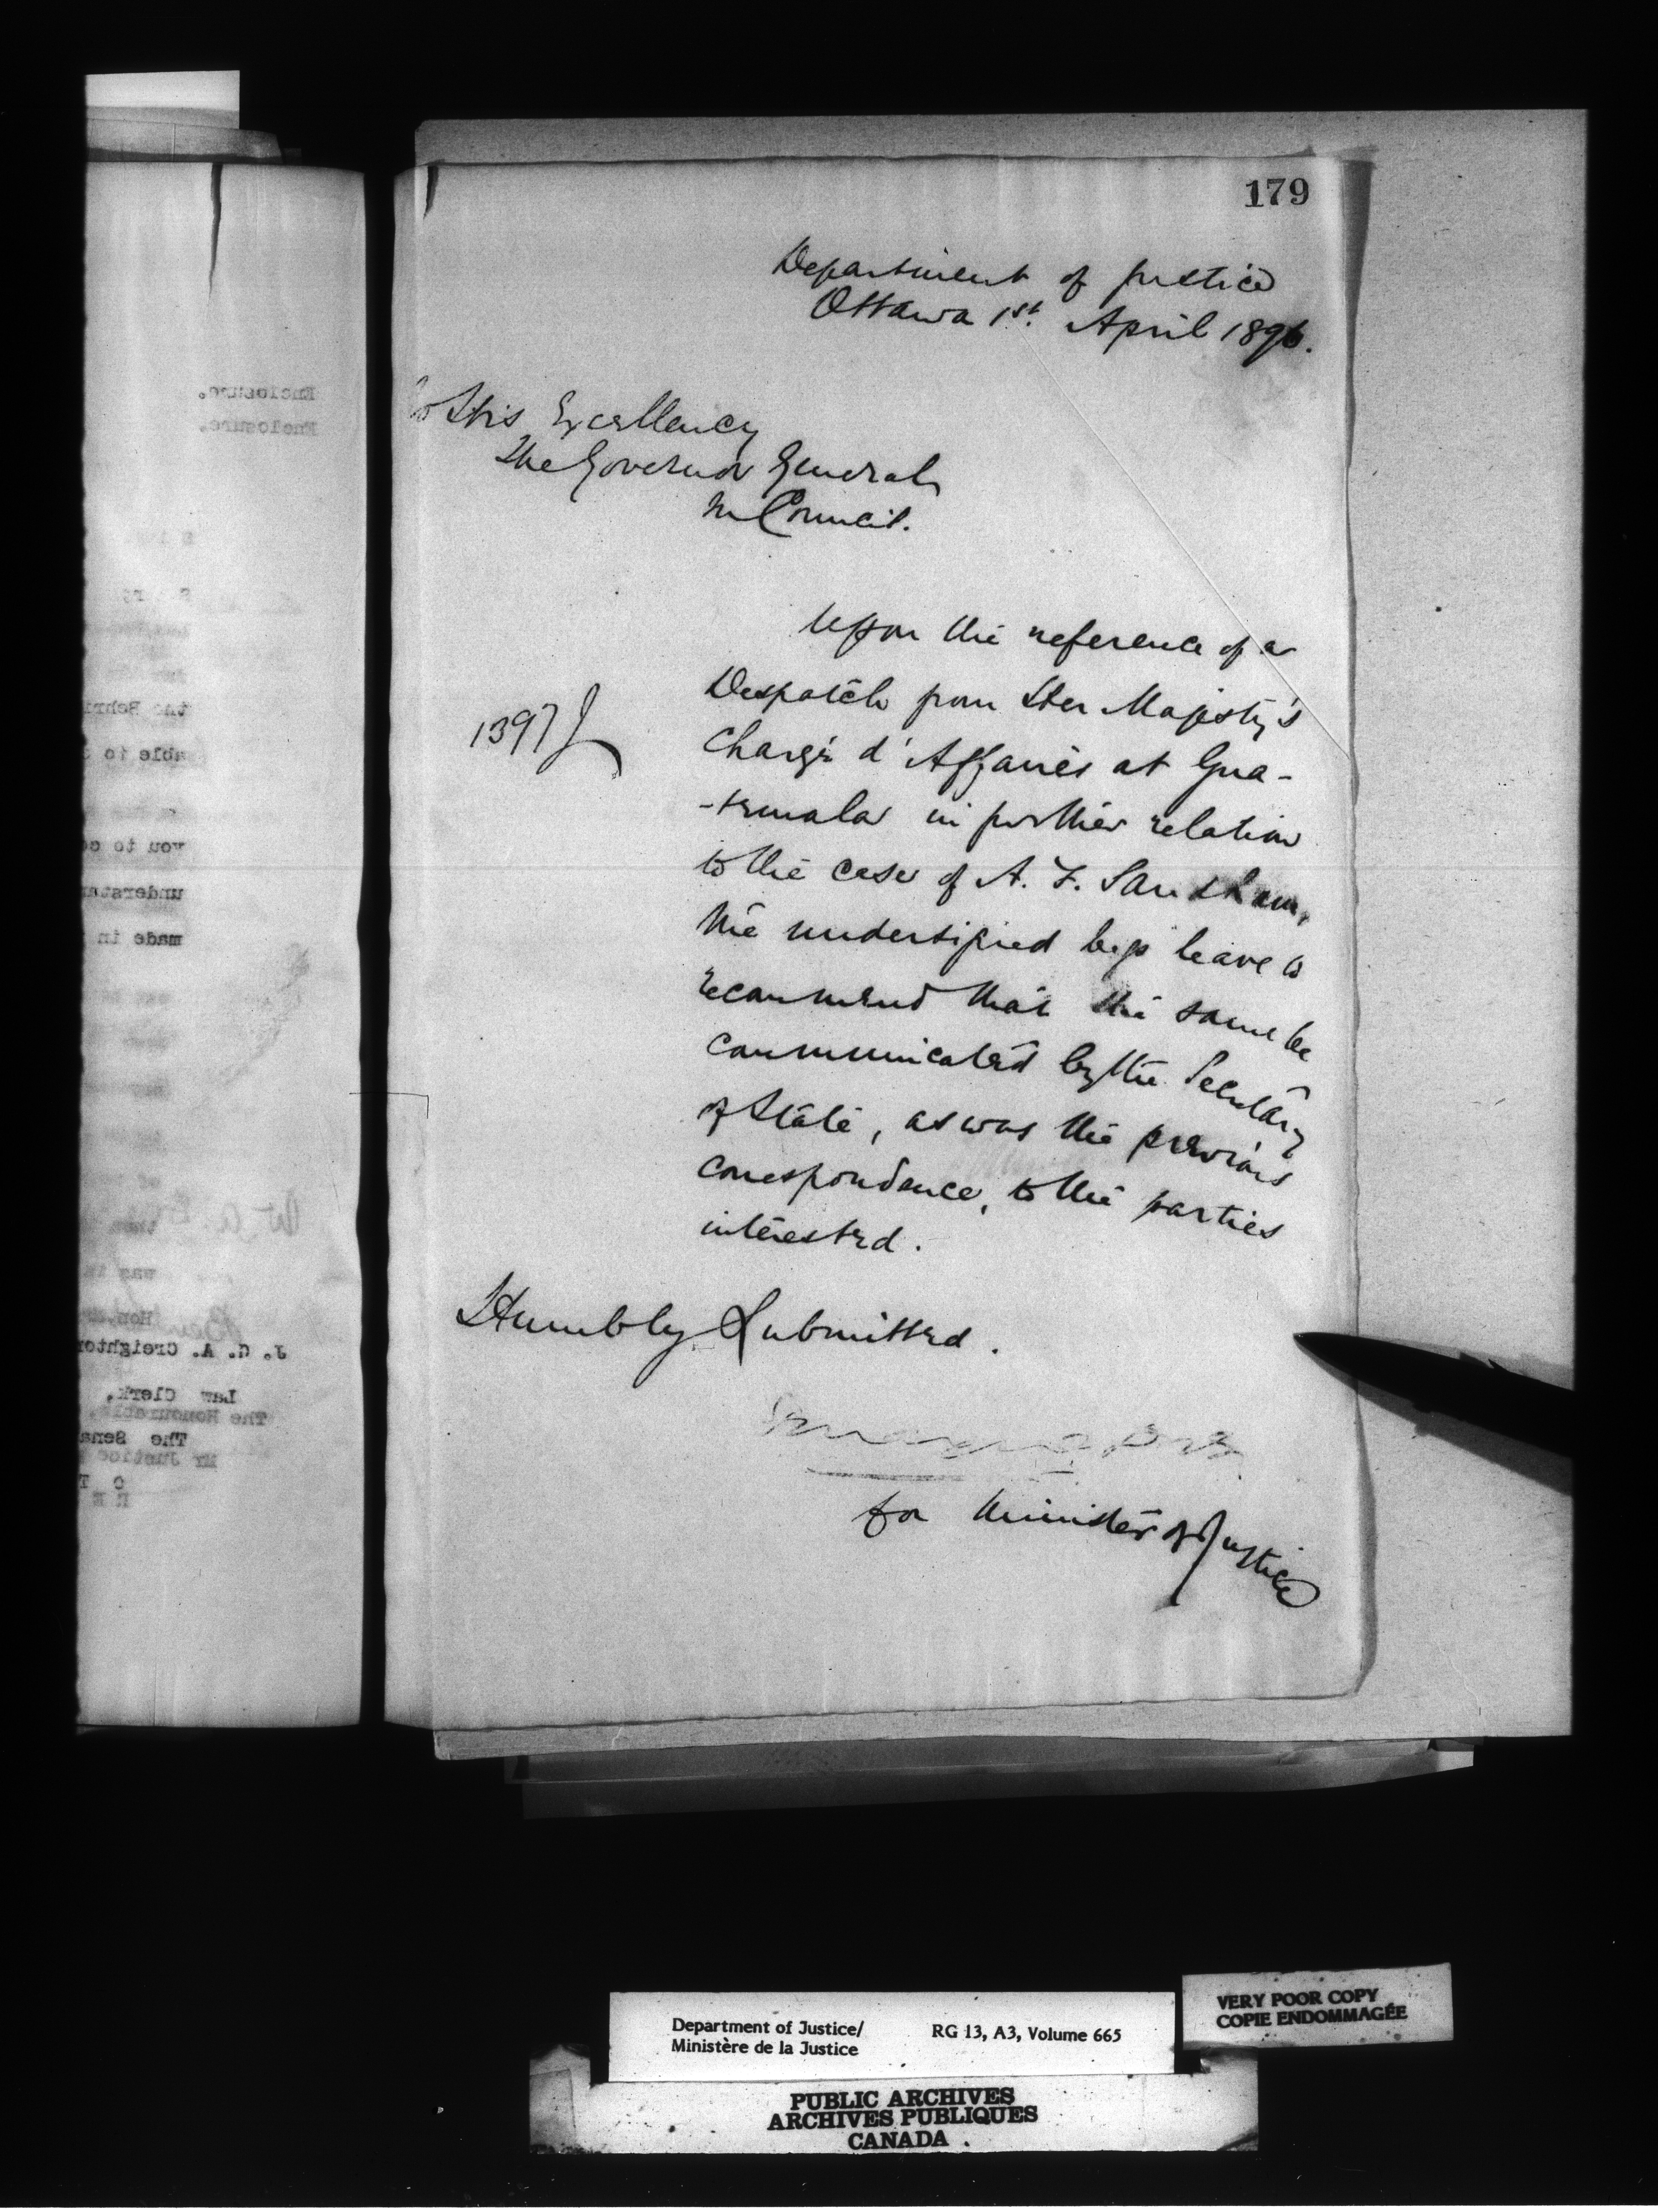 179
Department of Justice
Ottawa 1st. April 1896.
To His Excellency
The Governor General
in Council.
Upon the reference of a
1397 J
Despatch from Her Majesty's
Chargé d'Affaires at Gua-
-temala in further relation
to the case of A. F. Sandham,
the undersigned begs leave to
recommend that the same be
communicated by the Secretary
of State, as was the previous
correspondence, to the parties
interested.
Humbly Submitted.
for Minister of Justice
Enclosure.
Enclosure.
the Behri
able to
you to
understan
made in
was in
Hon.
J. G. A. Creighton
Law Clerk,
The Honourable,
The Sena
Mr Justice
O T
Department of Justice/
Ministère de la Justice
RG 13, A3, Volume 665
VERY POOR COPY
COPIE ENDOMMAGÉE
PUBLIC ARCHIVES
ARCHIVES PUBLIQUES
CANADA